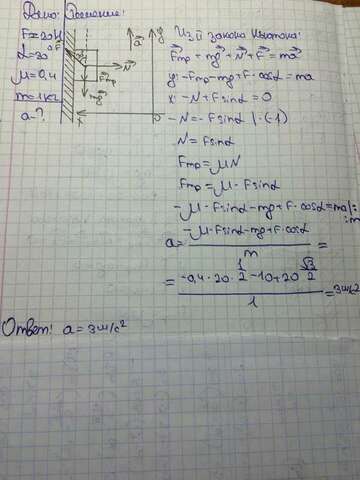 Дано:
F=20Н
α=30°
μ=0,4
m=1кг
a-?
Решение:
F
N
Fтр
mg
a
y
x
0
Из II закона Ньютона:
Fтр + mg + N + F = ma
y: -Fтр-mg+F·cosα = ma
x: -N+Fsinα = 0
-N = -Fsinα |·(-1)
N = Fsinα
Fтр = μN
Fтр = μ·Fsinα
-μ·Fsinα-mg+F·cosα=ma|:m
a = (-μ·Fsinα-mg+F·cosα)/m =
= (-0,4·20·1/2-10+20·√3/2)/1 = 3м/с2
Ответ: a = 3м/с²